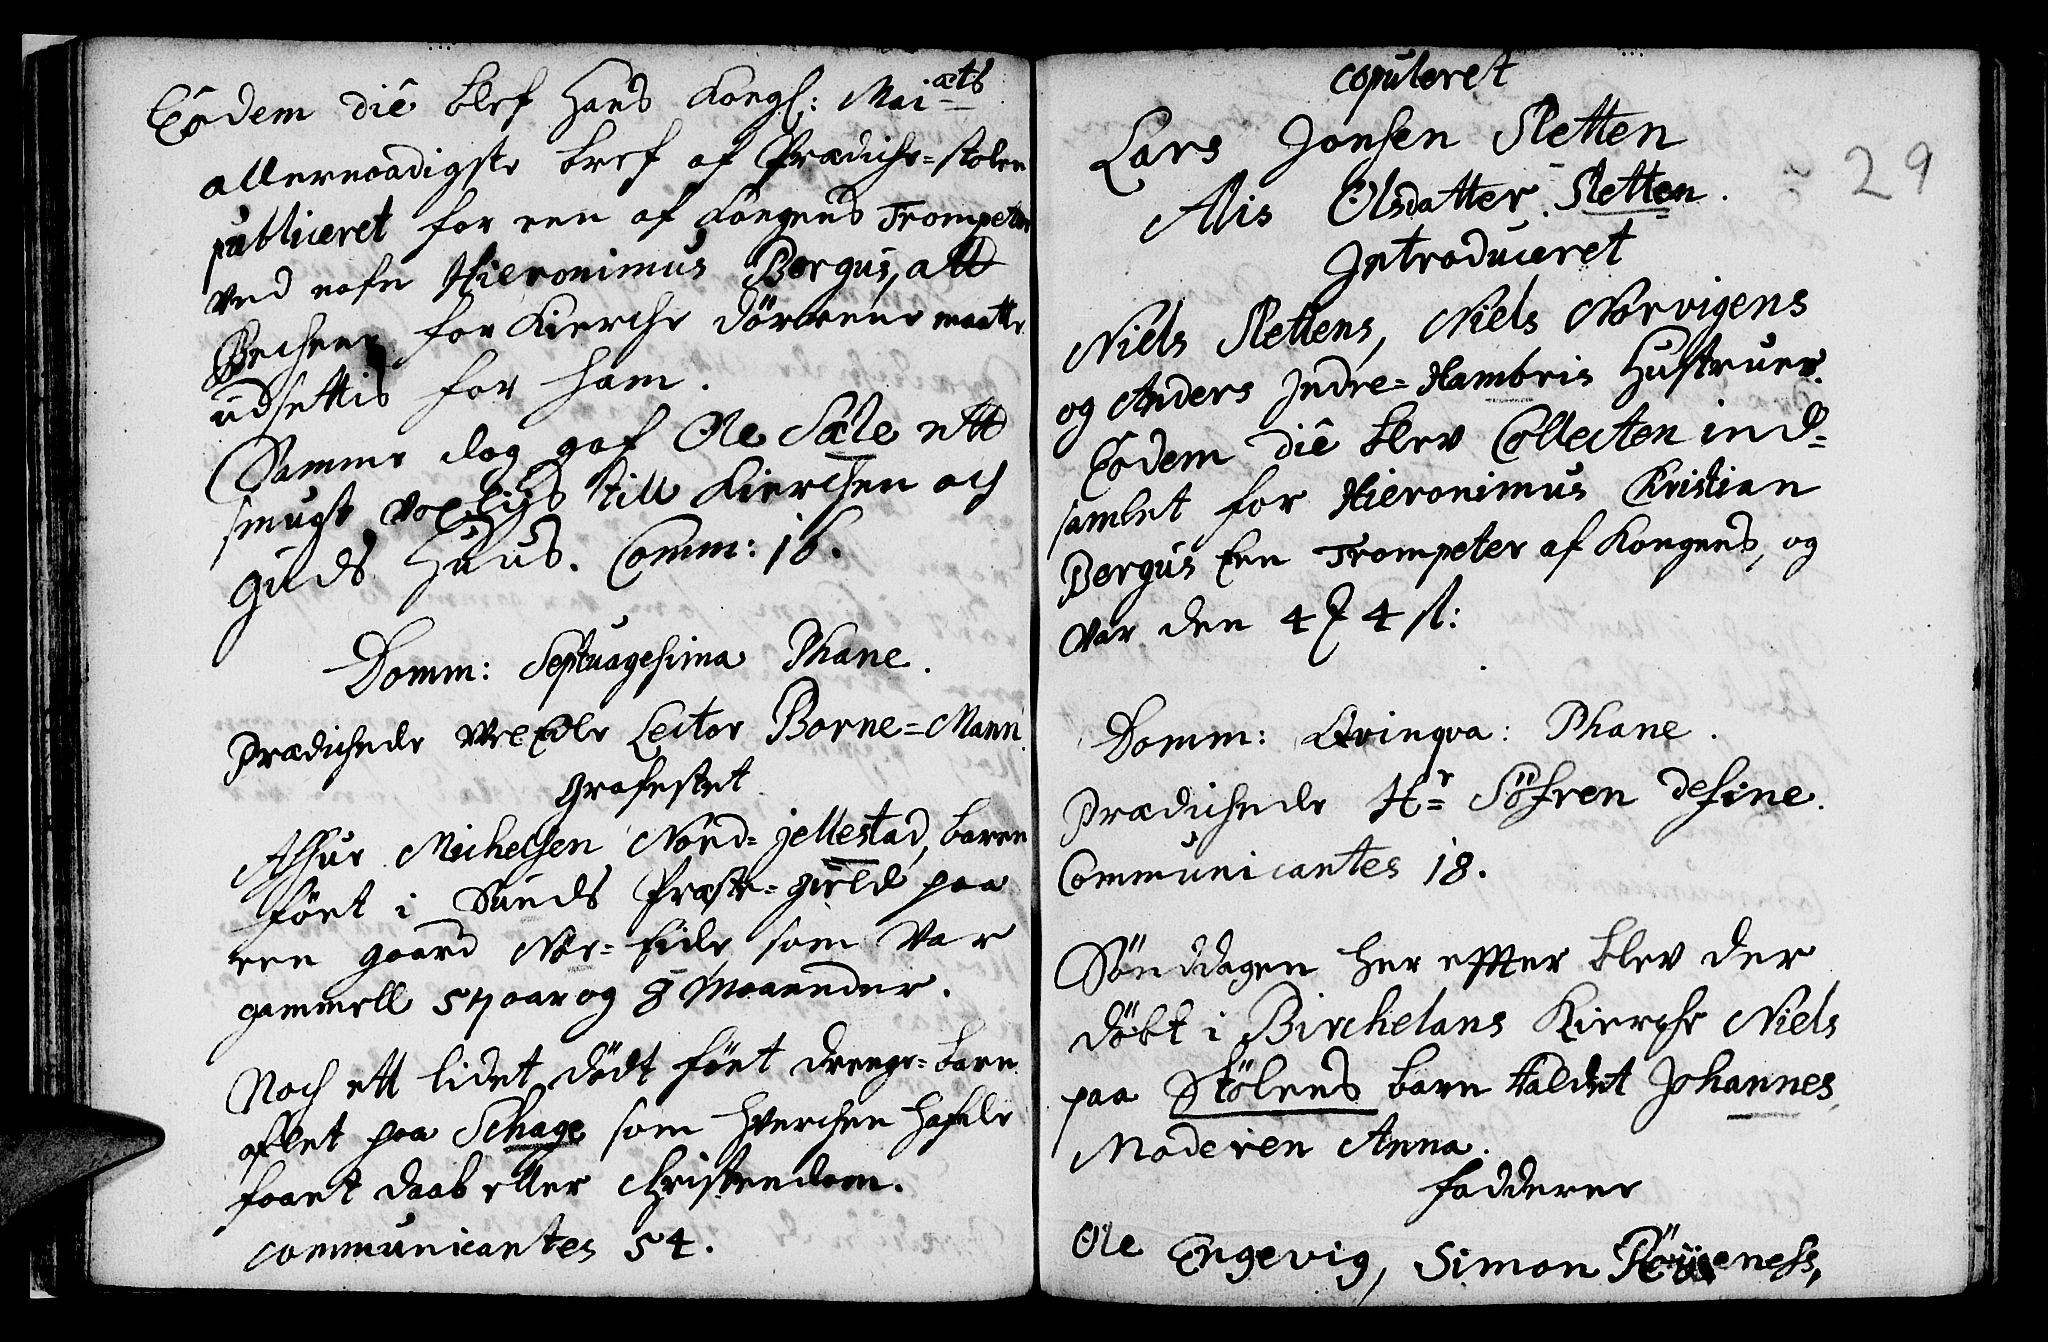 Eodem diê blef Hans Kongl: Mai^æts
allernaadigste bref af Prædiche=stolen
publiceret for een af Kongens Trompeter
ved nafn Hieronimus Bergus, att
Becheen for Kierche dörrene maatte
udsettis for ham.
Samme dag gaf Ole Sæle ett
smugt voxliys till Kierchen och
Guds Huus. Comm: 16.
Domm: Septuagesima Phane.
Prædichede WelEdle Lector Borne=Mann
Grafestet
Assur Michelsen Nord=jellestad, baren
föet i Sunds Præste=gield paa
een gaard Nor=Eide som var
gammell 57 aar og 8 Maaneder.
Noch ett lidet dödt föet drenge=barn
aflet paa Schage som hverchen hafde
faaet daab eller Christendom.
communicantes 54.
copuleret
Lars Jonsen Sletten
Alis Olsdatter Sletten.
Introduceret
Niels Slettens, Niels Norvigens
og Anders Indre=Hambris Hustruer
Eodem diê blev Collecten ind=
samlet for Hieronimus Kristian
Bergus Een Trompeter af Kongens, og
var den 4 ꝸ 4 sl:
Domm: Qvinqva: Phane.
Prædichede Hr Söfren Define.
Communicantes 18.
Sönddagen her effter blev der
döbt i Birchelans Kierche Niels
paa Stölens barn kaldet Johannes,
Moderen Anna.
Fadderne
Ole Engevig, Simon Röüsneness,
29